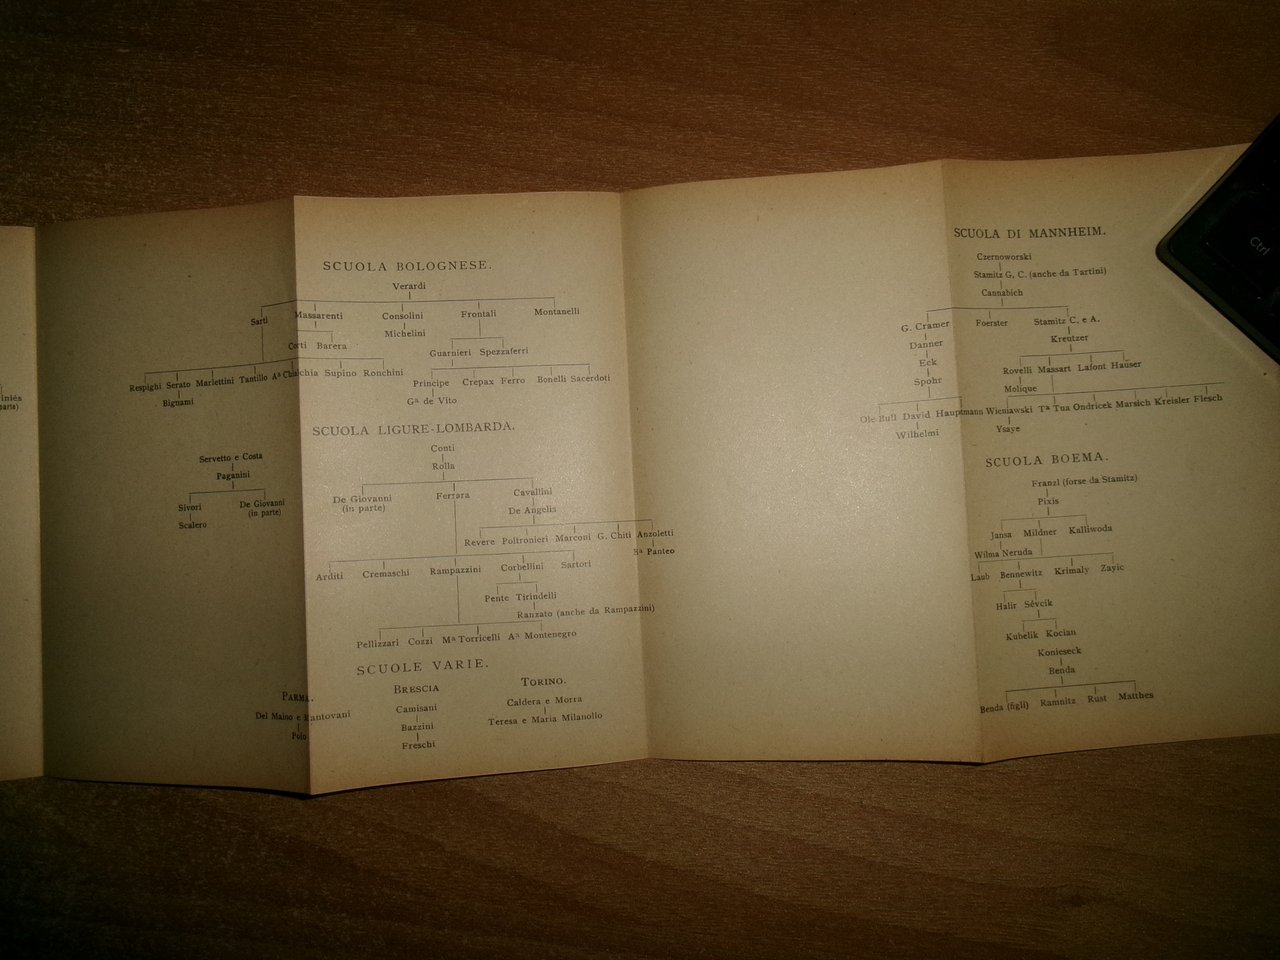 SCUOLA BOLOGNESE.
Verardi
Sarti Massarenti Consolini Frontali Montanelli
Corti Barera Michelini
Guarnieri Spezzaferri
Respighi Serato Marlettini Tantillo Aª Chialchia Supino Ronchini
Principe Crepax Ferro Bonelli Sacerdoti
Bignami
Gª de Vito
SCUOLA LIGURE-LOMBARDA.
Servetto e Costa
Paganini
Sivori De Giovanni
(in parte)
Scalero
Conti
Rolla
De Giovanni
(in parte)
Ferrara Cavallini
De Angelis
Revere Poltronieri Marconi G. Chiti Anzoletti
Bª Panteo
Arditi Cremaschi Rampazzini Corbellini Sartori
Pente Tirindelli
Ranzato (anche da Rampazzini)
Pellizzari Cozzi Mª Torricelli Aª Montenegro
SCUOLE VARIE.
PARMA.
Del Maino e Mantovani
Polo
BRESCIA
Camisani
Bazzini
Freschi
TORINO.
Caldera e Morra
Teresa e Maria Milanollo
SCUOLA DI MANNHEIM.
Czernoworski
Stamitz G. C. (anche da Tartini)
Cannabich
G. Cramer Foerster Stamitz C. e A.
Danner Kreutzer
Eck
Rovelli Massart Lafont Haüser
Spohr Molique
Ole Bull David Hauptmann Wieniawski Tª Tua Ondricek Marsich Kreisler Flesch
Wilhelmi Ysaye
SCUOLA BOEMA.
Franzl (forse da Stamitz)
Pixis
Jansa Mildner Kalliwoda
Wilma Neruda
Laub Bennewitz Krimaly Zayic
Halir Sévcik
Kubelik Kocian
Konieseck
Benda
Benda (figli) Ramnitz Rust Matthes
Ctrl